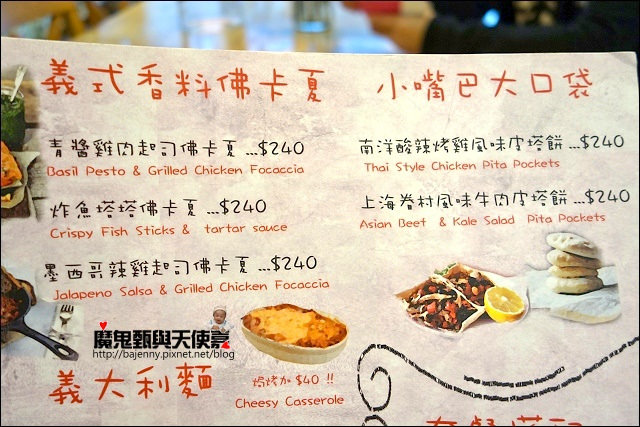 義式香料佛卡夏
青醬雞肉起司佛卡夏 ...$240
Basil Pesto & Grilled Chicken Focaccia
炸魚塔塔佛卡夏 ...$240
Crispy Fish Sticks & tartar sauce
墨西哥辣雞起司佛卡夏 ...$240
Jalapeno Salsa & Grilled Chicken Focaccia
魔鬼甄與天使嘉
http://bajenny.pixnet.net/blog
義大利麵
焗烤加 $40 !!
Cheesy Casserole
小嘴巴大口袋
南洋酸辣烤雞風味皮塔餅 ...$240
Thai Style Chicken Pita Pockets
上海眷村風味牛肉皮塔餅 ...$240
Asian Beef & Kale Salad Pita Pockets